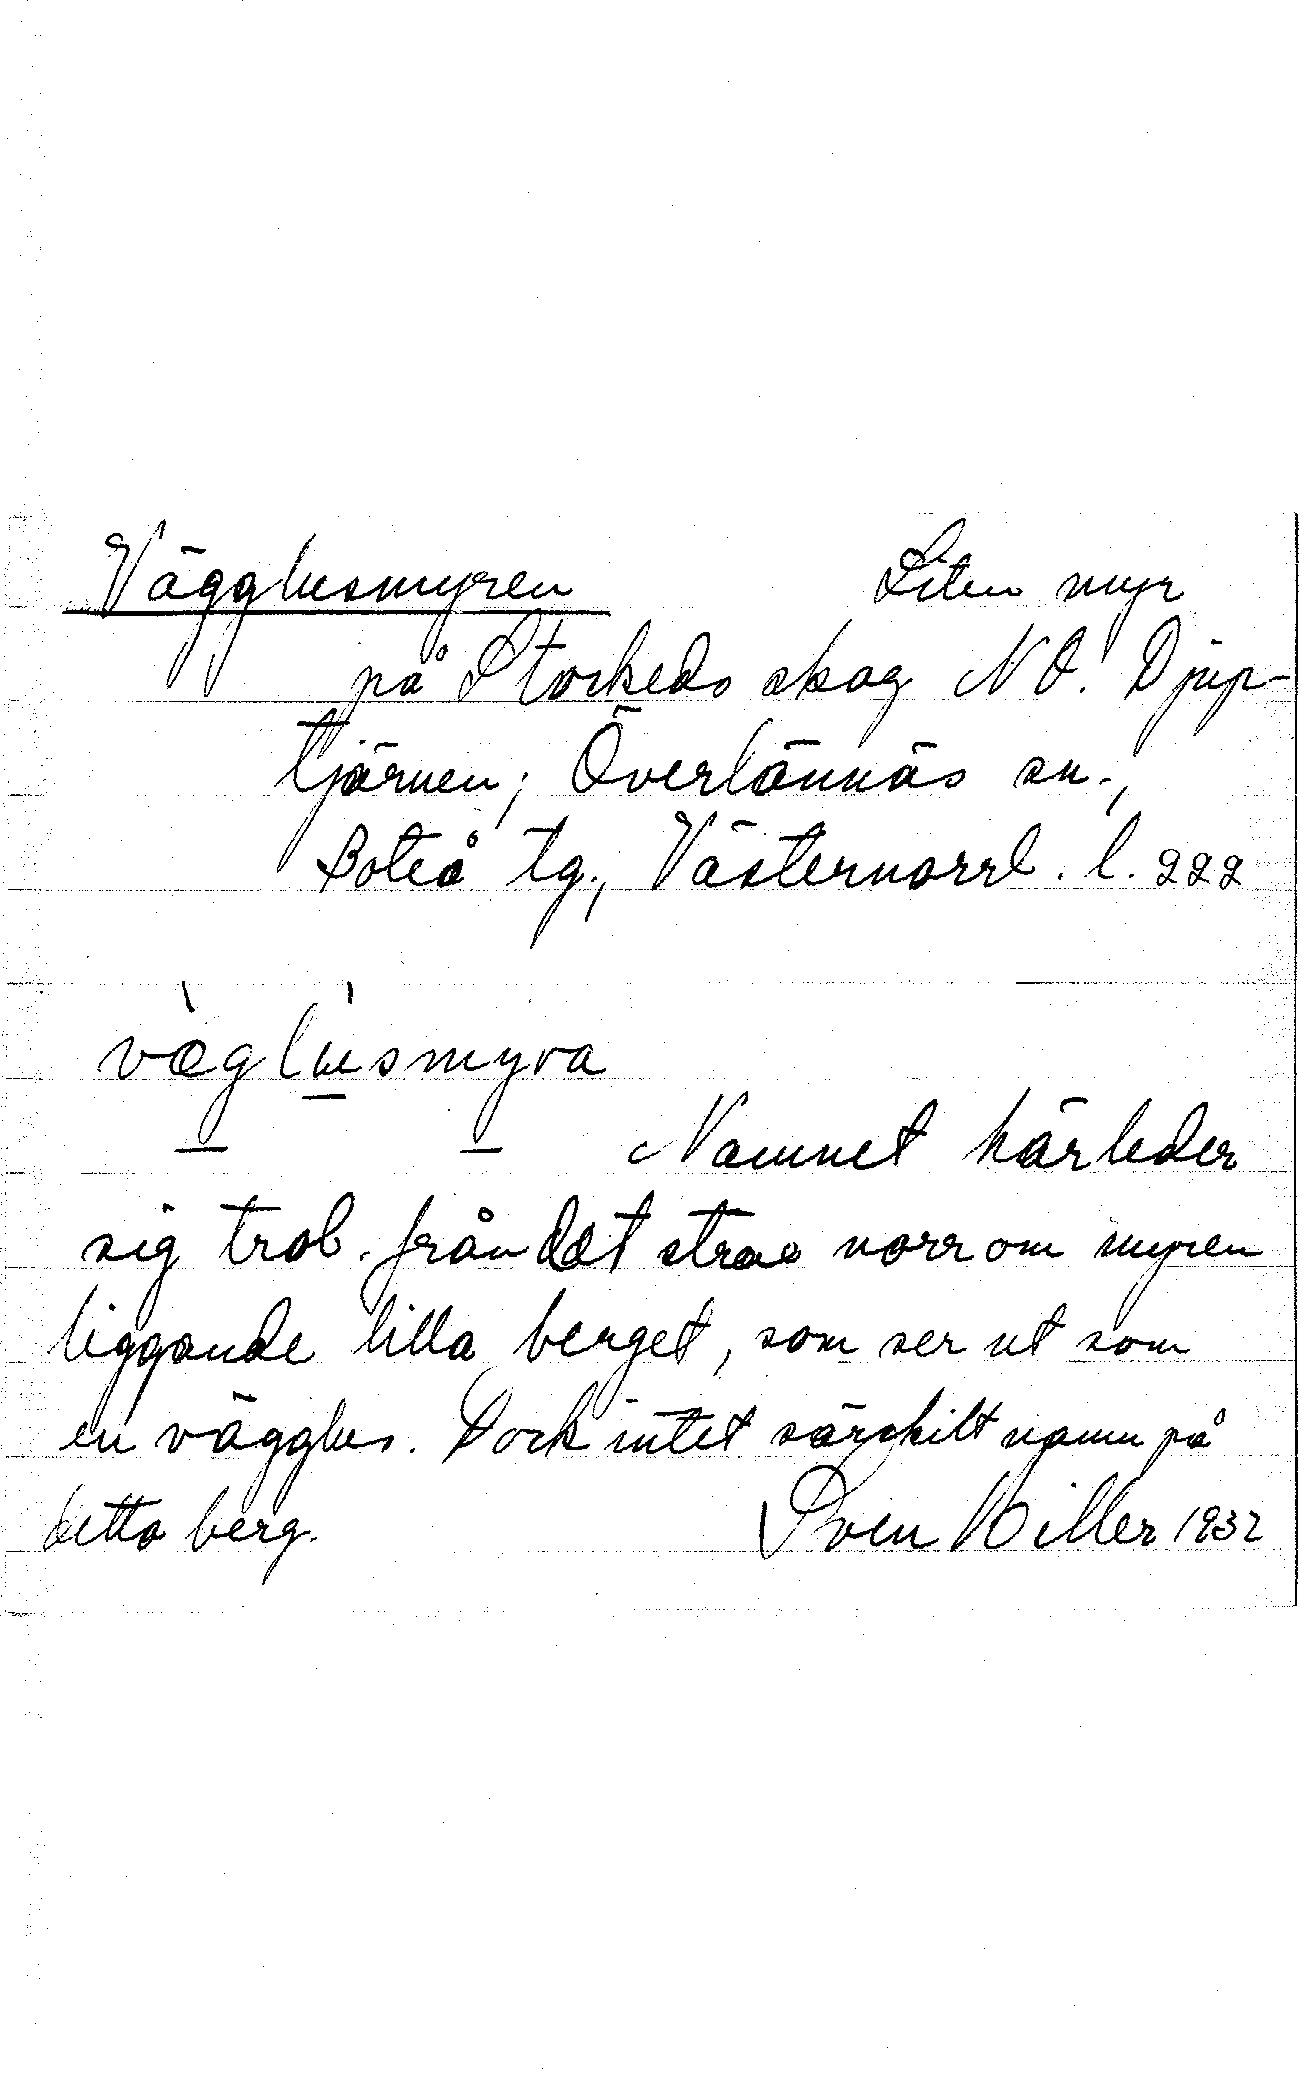 Vägglusmyren Liten myr
på Storkeds skog NO. Djup-
tjärnen; Överlännäs sn.,
Boteå tg., Västernorrl. l. 222
vὲglùsmyra
Namnet härleder
sig trol. från det strax norr om myren
liggande lilla berget, som ser ut som
en vägglus. Dock intet särskilt namn på
detta berg. Sven Hiller 1932